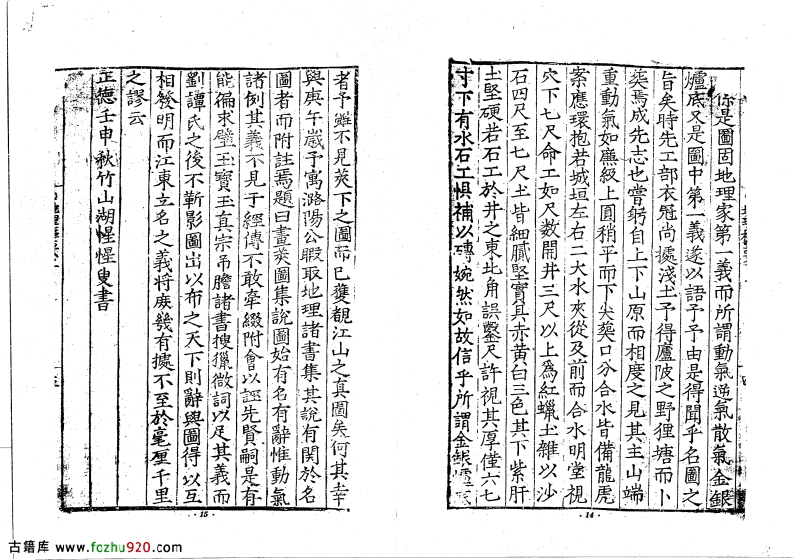 你是圖固地理家第一義而所謂動氣逆氣散氣金銀
爐底又是圖中第一義遂以語予予由是得聞乎名圖之
旨矣時先工部衣冠尚攄淺土予得廬陂之野狸塘而卜
葬焉成先志也嘗躬自上下山原而相度之見其主山端
重動氣如廉級上圓稍平而下尖葬口分合水皆備龍虎
案應環抱若城垣左右二大水夾從及前而合水明堂視
穴下七尺命工如尺數開井三尺以上爲紅蠟土雜以沙
石四尺至七尺土皆細膩堅實具赤黄白三色其下紫肝
土堅硬若石工於井之東北角誤鑿尺許視其厚僅六七
寸下有水石工惧補以磚婉然如故信乎所謂金銀爐底
14
者予雖不見葬下之圖而已獲覩江山之真圖矣何其幸
與庚午歲予寓潞陽公暇取地理諸書集其說有關於名
圖者而附註焉題曰畫葬圖集說圖始有名有辭惟動氣
諸例其義不見于經傳不敢牽綴附會以誣先賢嗣是有
能徧求璧玉寶玉真宗吊膽諸書搜獵微詞以足其義而
劉譚氏之後不靳影圖出以布之天下則辭與圖得以互
相發明而江東立名之義將庶幾有攄不至於毫厘千里
之謬云
正德壬申秋竹山湖惺惺叟書
15
古籍库 www.fozhu920.com